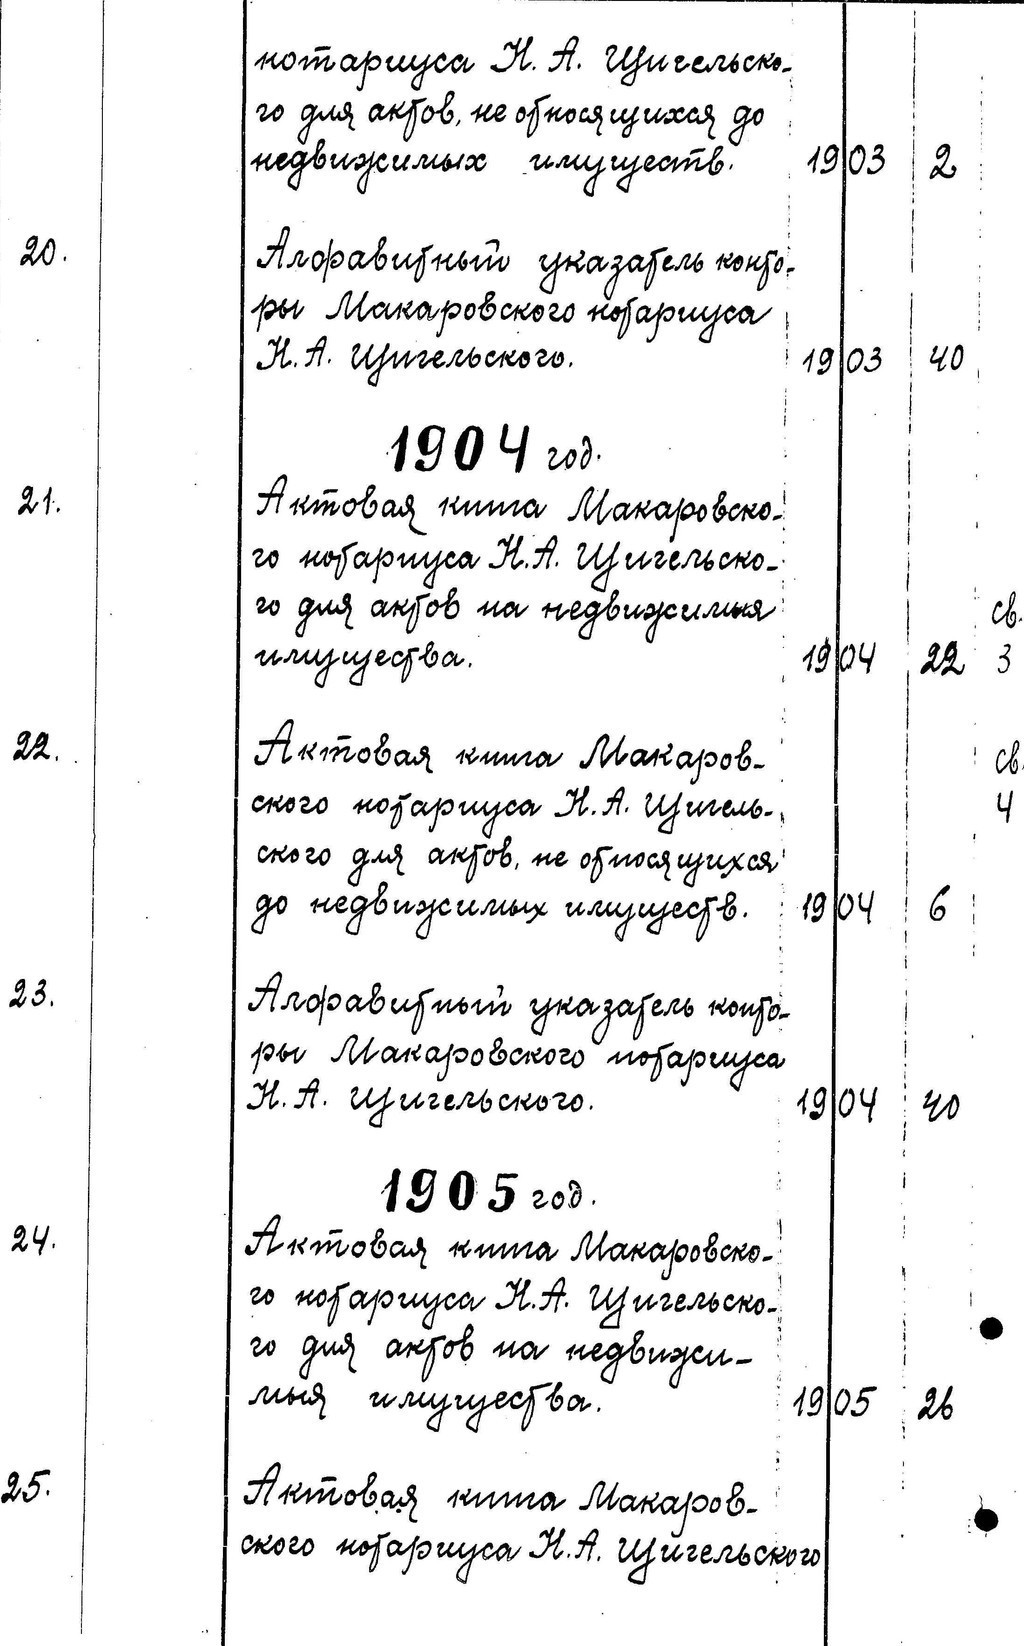 нотариуса Н. А. Щигельско-
го для актов, не относящихся до
недвижимых имуществ. 1903 2
20. Алфавитный указатель конто-
ры Макаровского нотариуса
Н. А. Щигельского. 1903 40
1904 год.
21. Актовая книга Макаровско-
го нотариуса Н. А. Щигельско-
го для актов на недвижимыя св.
имущества. 1904 22 3
22. Актовая книга Макаров- св.
ского нотариуса Н. А. Щигель- 4
ского для актов, не относящихся
до недвижимых имуществ. 1904 6
23. Алфавитный указатель конто-
ры Макаровского нотариуса
Н. А. Щигельского. 1904 40
1905 год.
24. Актовая книга Макаровско-
го нотариуса Н. А. Щигельско-
го для актов на недвижи-
мыя имущества. 1905 26
25. Актовая книга Макаров-
ского нотариуса Н. А. Щигельского